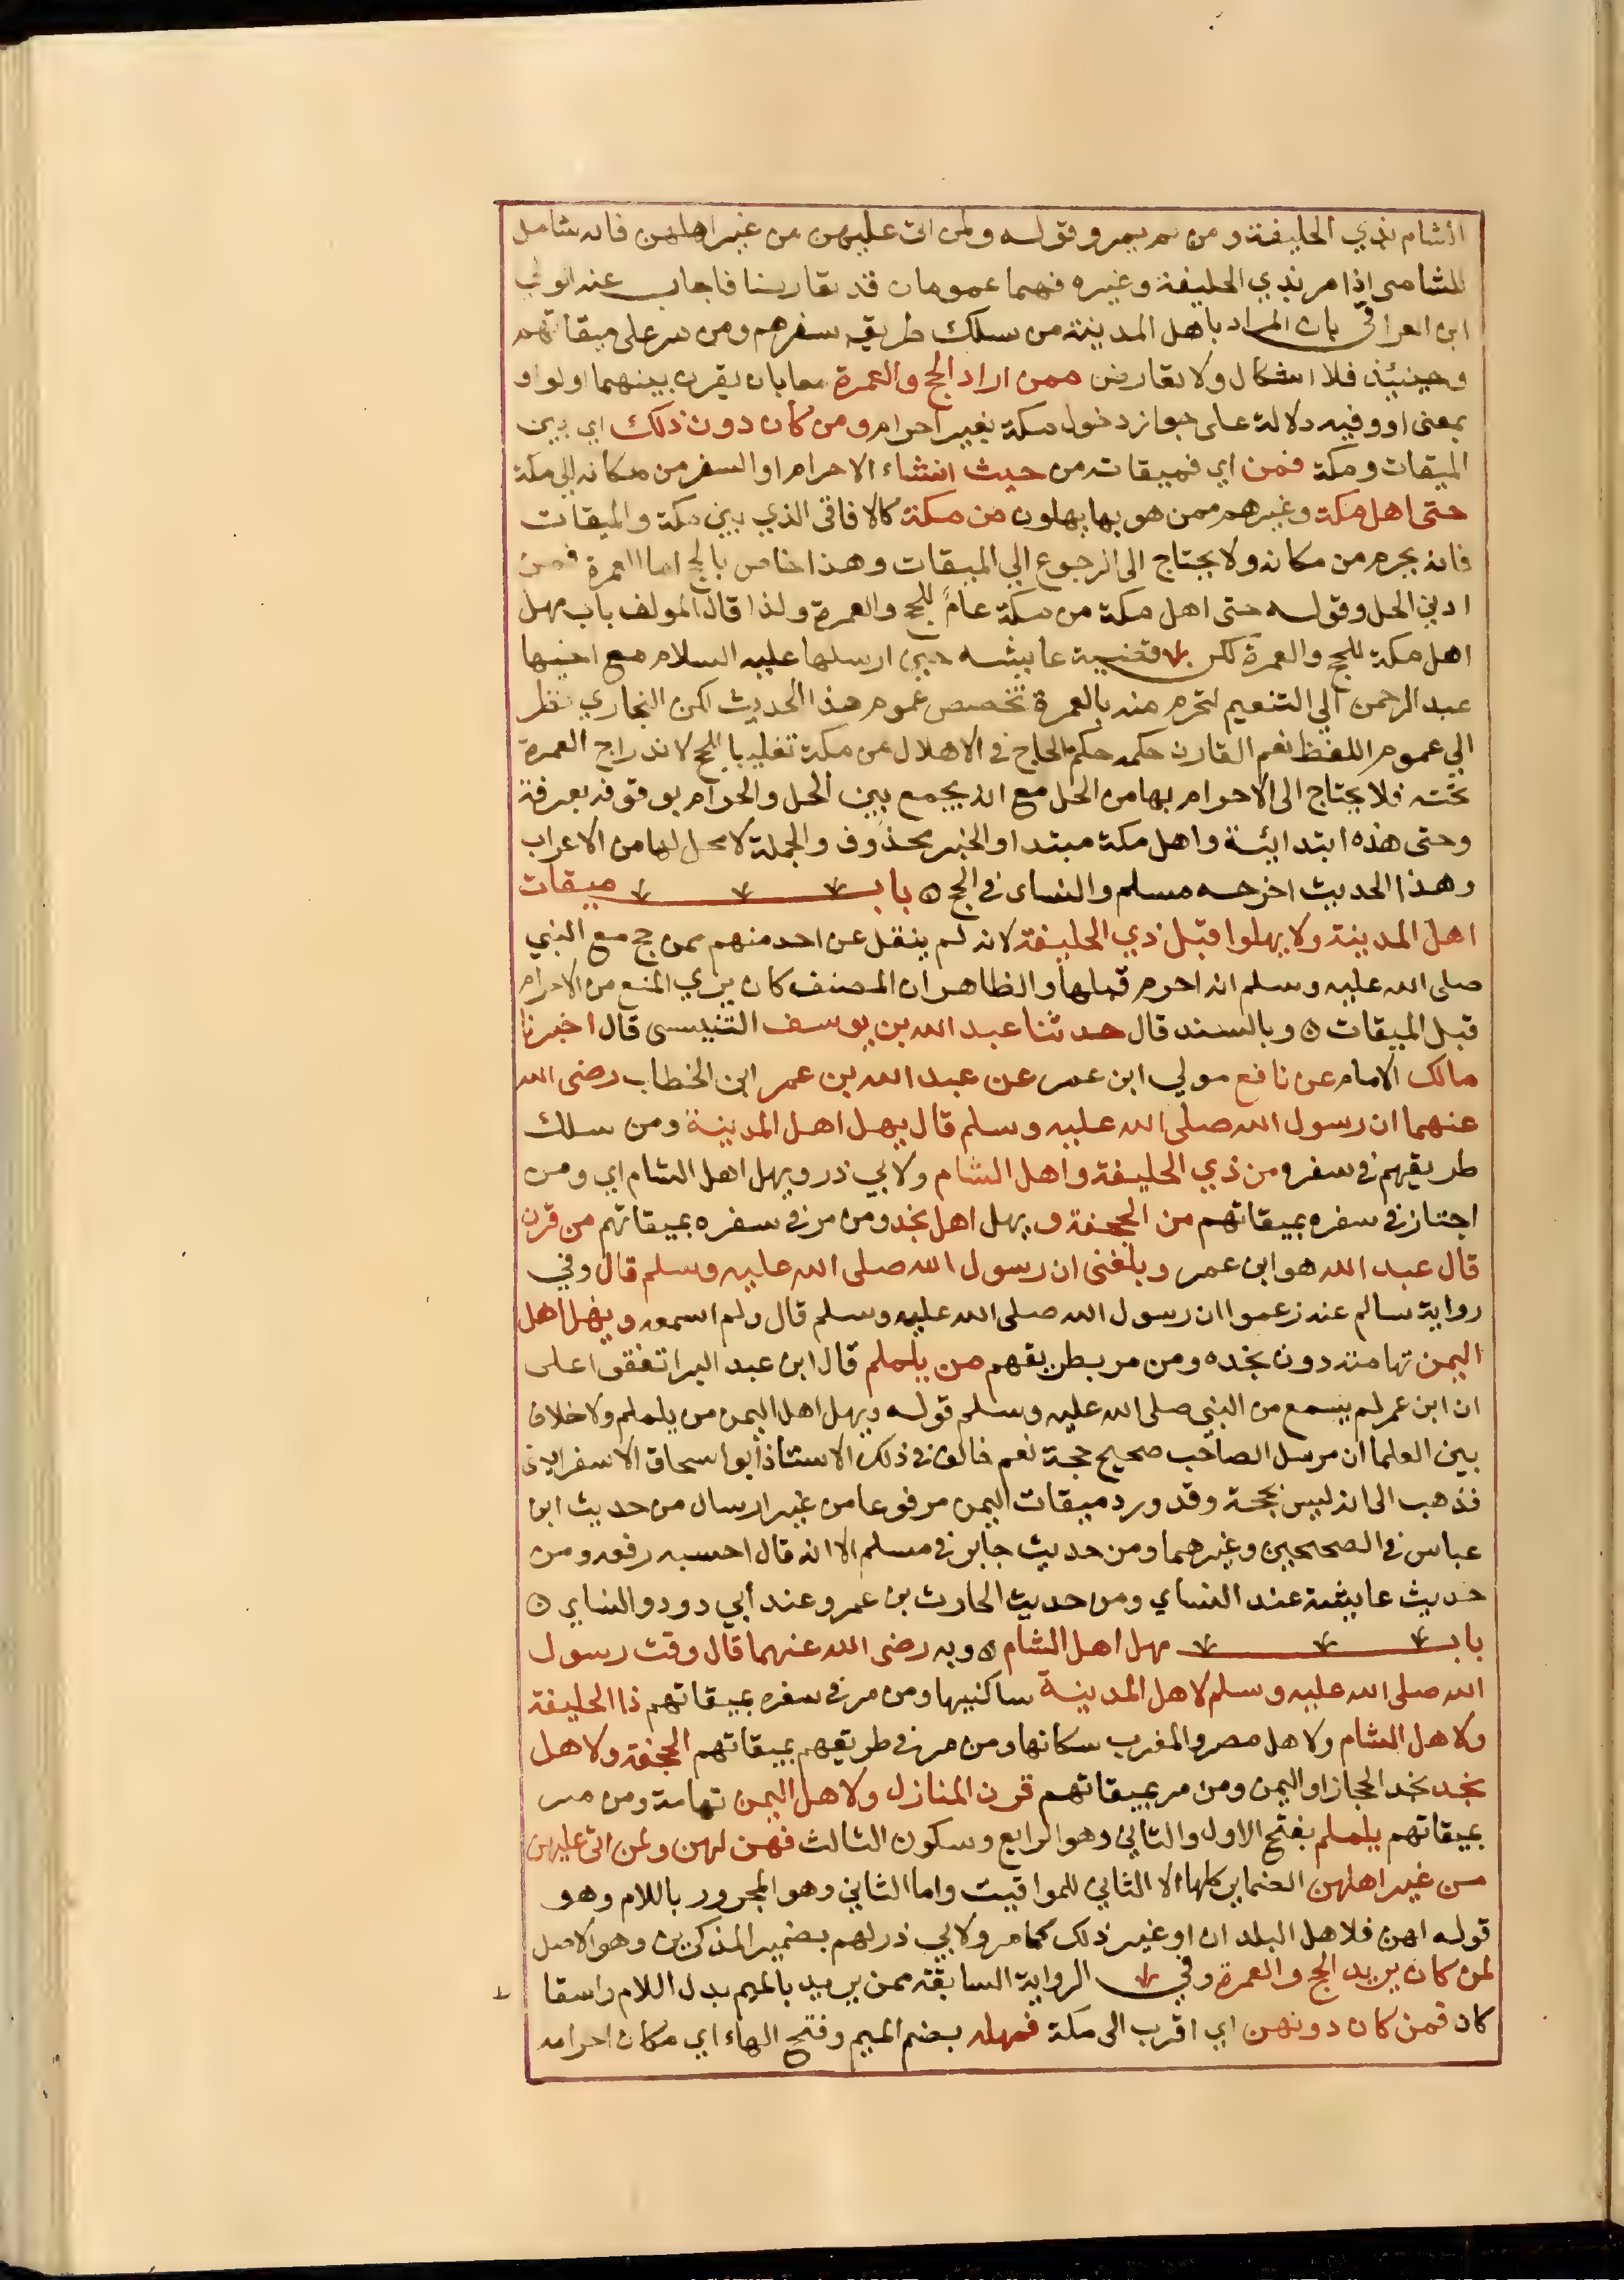 الشام بذي الحليفة ومن لم يمر وقوله ولمن اتى عليهن من غير اهلهن فانه شامل
للشامي اذا مر بذي الحليفة وغيره فهما عمومان قد تعارضا فاجاب عنه الولي
ابن العراقي بان المراد باهل المدينة من سلك طريق سفرهم ومن مر على ميقاتهم
وحينئذ فلا اشكال ولا تعارض ممن اراد الحج والعمرة معا بان يقرن بينهما او الواو
بمعنى او وفيه دلالة على جواز دخول مكة بغير احرام ومن كان دون ذلك اي بين
الميقات ومكة فمن اي فميقاته من حيث انشاء الاحرام او السفر من مكانه الي مكة
حتى اهل مكة وغيرهم ممن هو بها يهلون من مكة كالافاقي الذي بين مكة والميقات
فانه يحرم من مكانه ولا يحتاج الى الرجوع الي الميقات وهذا خاص بالحج اما العمرة فمن
ادني الحل وقوله حتى اهل مكة من مكة عام للحج والعمرة ولذا قال المولف باب مهل
اهل مكة للحج والعمرة لكن قضية عايشه حين ارسلها عليه السلام مع اخيها
عبد الرحمن الي التنعيم لتحرم منه بالعمرة تخصص عموم هذا الحديث لكن البخاري نظر
الي عموم اللفظ نعم القارن حكمه حكم الحاج في الاهلال من مكة تغليبا للحج لاندراج العمرة
تحته فلا يحتاج الى الاحرام بها من الحل مع انه يجمع بين الحل والحرام بوقوفه بعرفة
وحتى هذه ابتدائية واهل مكة مبتدا والخبر محذوف والجملة لا محل لها من الاعراب
وهذا الحديث اخرجه مسلم والنساى في الحج ۞ باب ميقات
اهل المدينة ولا يهلوا قبل ذي الحليفة لانه لم ينقل عن احد منهم ممن حج مع النبي
صلى الله عليه وسلم انه احرم قبلها والظاهر ان المصنف كان يري المنع من الاحرام
قبل الميقات ۞ وبالسند قال حدثنا عبد الله بن يوسف التنيسى قال اخبرنا
مالك الامام عن نافع مولي ابن عمر عن عبد الله بن عمر ابن الخطاب رضى الله
عنهما ان رسول الله صلى الله عليه وسلم قال يهل اهل المدينة ومن سلك
طريقهم في سفره من ذي الحليفة واهل الشام ولابي ذر ويهل اهل الشام اي ومن
اجتاز في سفره بميقاتهم من الجحفة و يهل اهل نجد ومن مر في سفره بميقاتهم من قرن
قال عبد الله هو ابن عمر وبلغنى ان رسول الله صلى الله عليه وسلم قال وفي
رواية سالم عنه زعموا ان رسول الله صلى الله عليه وسلم قال ولم اسمعه ويهل اهل
اليمن تهامته دون نجده ومن مر بطريقهم من يلملم قال ابن عبد البر اتفقوا على
ان ابن عمر لم يسمع من النبي صلى الله عليه وسلم قوله ويهل اهل اليمن من يلملم ولا خلاف
بين العلما ان مرسل الصاحب صحيح حجة نعم خالف في ذلك الاستاذ ابو اسحاق الاسفرايني
فذهب الى انه ليس بحجة وقد ورد ميقات اليمن مرفوعا من غير ارسال من حديث ابن
عباس في الصحيحين وغيرهما ومن حديث جابر في مسلم الا انه قال احسبه رفعه ومن
حديث عايشة عند النساي ومن حديث الحارث بن عمرو عند أبي دود والنساي ۞
باب مهل اهل الشام ۞ وبه رضى الله عنهما قال وقت رسول
الله صلى الله عليه وسلم لاهل المدينة ساكنيها ومن مر في سفره بميقاتهم ذا الحليفة
ولاهل الشام ولاهل مصر والمغرب سكانها ومن مر في طريقهم بميقاتهم الجحفة ولاهل
نجد نجد الحجاز او اليمن ومن مر بميقاتهم قرن المنازل ولاهل اليمن تهامة ومن مر
بميقاتهم يلملم بفتح الاول والثاني وهو الرابع وسكون الثالث فهن لهن ولمن اتى عليهن
من غير اهلهن الضماير كلها الا الثاني للمواقيت واما الثاني وهو المجرور باللام وهو
قوله لهن فلاهل البلدان او غير ذلك كما مر ولابي ذر لهم بضمير المذكرين وهو الاصل
لمن كان يريد الحج والعمرة وفي الرواية السابقة ممن يريد بالميم بدل اللام واسقا
كان فمن كان دونهن اي اقرب الى مكة فمهله بضم الميم وفتح الهاء اي مكان احرامه